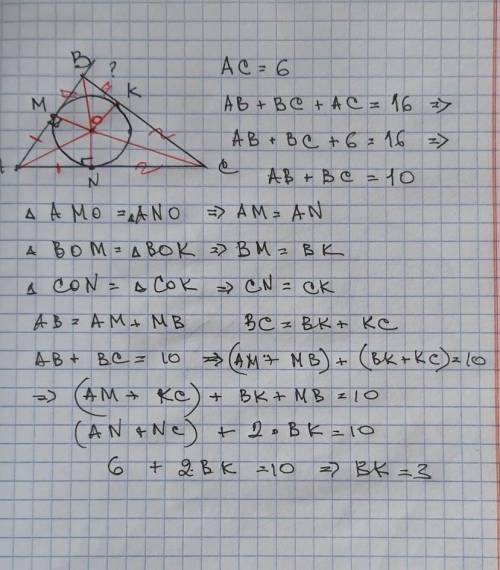 B ?
K
M
O
A
N
C
AC = 6
AB + BC + AC = 16 =>
AB + BC + 6 = 16 =>
AB + BC = 10
△ AMO = △ANO => AM = AN
△ BOM = △BOK => BM = BK
△ CON = △ COK => CN = CK
AB = AM + MB BC = BK + KC
AB + BC = 10 => (AM + MB) + (BK + KC) = 10
=> (AM + KC) + BK + MB = 10
(AN + NC) + 2 · BK = 10
6 + 2 · BK = 10 => BK = 3